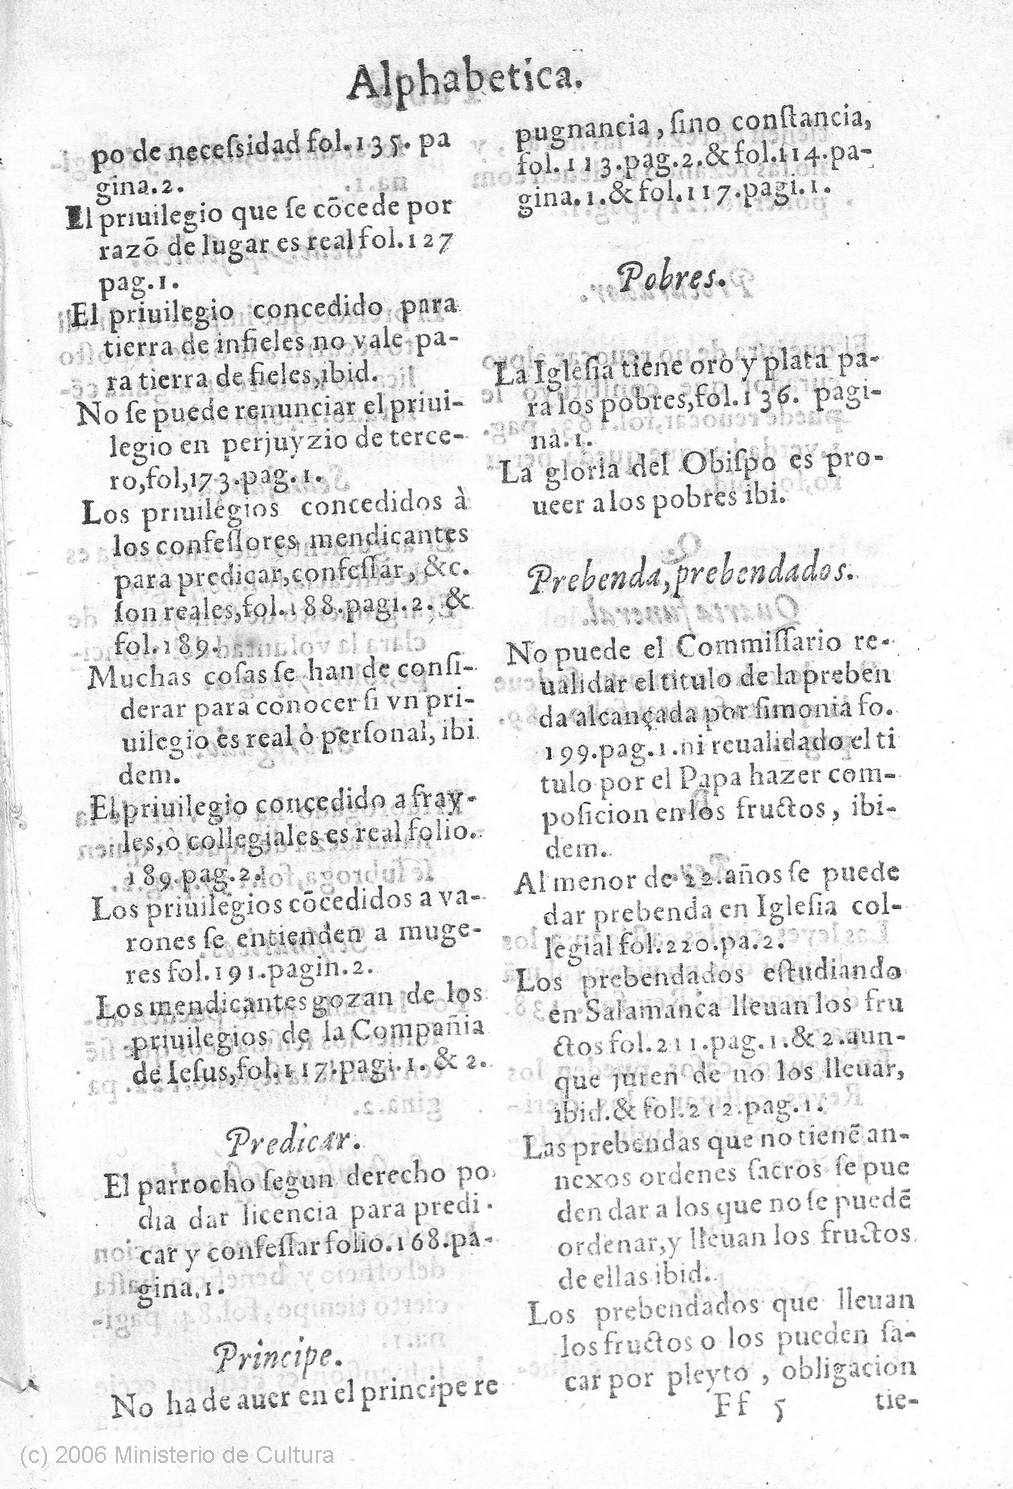 Alphabetica.
po de neceſsidad fol.135. pa
gina.2.
El priuilegio que ſe cõcede por
razõ de lugar es real fol.127
pag.1.
El priuilegio concedido para
tierra de infieles no vale pa-
ra tierra de fieles, ibid.
No ſe puede renunciar el priui-
legio en perjuyzio de terce-
ro, fol, 173.pag.1.
Los priuilegios concedidos à
los confeſſores mendicantes
para predicar, confeſſar, &c.
ſon reales, fol.188.pagi.2. &
fol.189.
Muchas coſas ſe han de conſi-
derar para conocer ſi vn pri-
uilegio es real ò perſonal, ibi
dem.
El priuilegio concedido a fray-
les, ò collegiales es real folio.
189.pag.2.
Los priuilegios cõcedidos a va-
rones ſe entienden a muge-
res fol.191.pagin.2.
Los mendicantes gozan de los
priuilegios de la Compañia
de Ieſus, fol.117.pagi.1. & 2.
Predicar.
El parrocho ſegun derecho po
dia dar licencia para predi-
car y confeſſar folio.168.pa-
gina.1.
Principe.
No ha de auer en el principe re
pugnancia, ſino conſtancia,
fol.113.pag.2.& fol.114.pa-
gina.1.& fol.117.pagi.1.
Pobres.
La Igleſia tiene oro y plata pa-
ra los pobres, fol.136. pagi-
na.1.
La gloria del Obiſpo es pro-
ueer a los pobres ibi.
Prebenda, prebendados.
No puede el Commiſſario re-
ualidar el titulo de la preben
da alcançada por ſimonia fo.
199.pag.1.ni reualidado el ti
tulo por el Papa hazer com-
poſicion en los fructos, ibi-
dem.
Al menor de 22.años ſe puede
dar prebenda en Igleſia col-
legial fol.220.pa.2.
Los prebendados eſtudiando
en Salamanca lleuan los fru
ctos fol.211.pag.1.& 2.aun-
que juren de no los lleuar,
ibid.& fol.212.pag.1.
Las prebendas que no tienẽ an-
nexos ordenes ſacros ſe pue
den dar a los que no ſe puedẽ
ordenar, y lleuan los fructos
de ellas ibid.
Los prebendados que lleuan
los fructos o los pueden ſa-
car por pleyto, obligacion
Ff 5 tie-
(c) 2006 Ministerio de Cultura